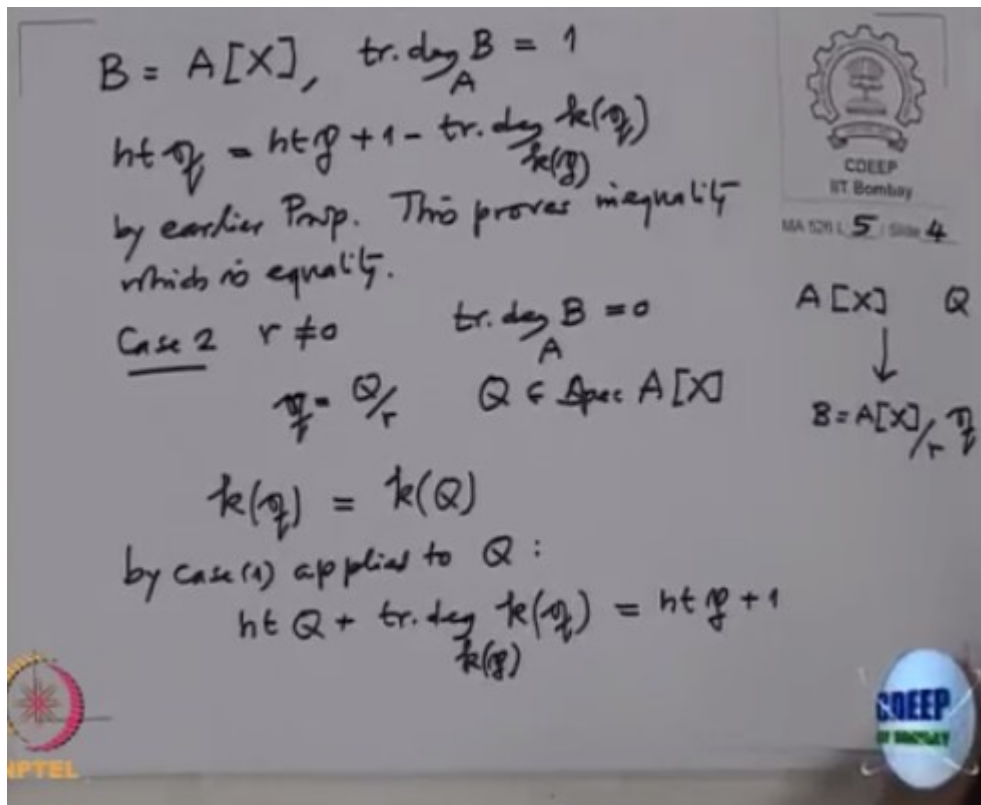 B = A[X], tr.deg_A B = 1
ht 𝔮 = ht 𝔭 + 1 - tr.deg_{k(𝔭)} k(𝔮)
by earlier Prop. This proves inequality
which is equality.
Case 2 r ≠ 0 tr.deg_A B = 0
𝔮 = Q/r Q ∈ Spec A[X]
k(𝔮) = k(Q)
by case (1) applied to Q :
ht Q + tr.deg_{k(𝔭)} k(𝔮) = ht 𝔭 + 1
CDEEP
IIT Bombay
MA 526 L 5 / Slide 4
A[X] Q
↓
B = A[X]/r 𝔮
NPTEL
CDEEP
IIT BOMBAY